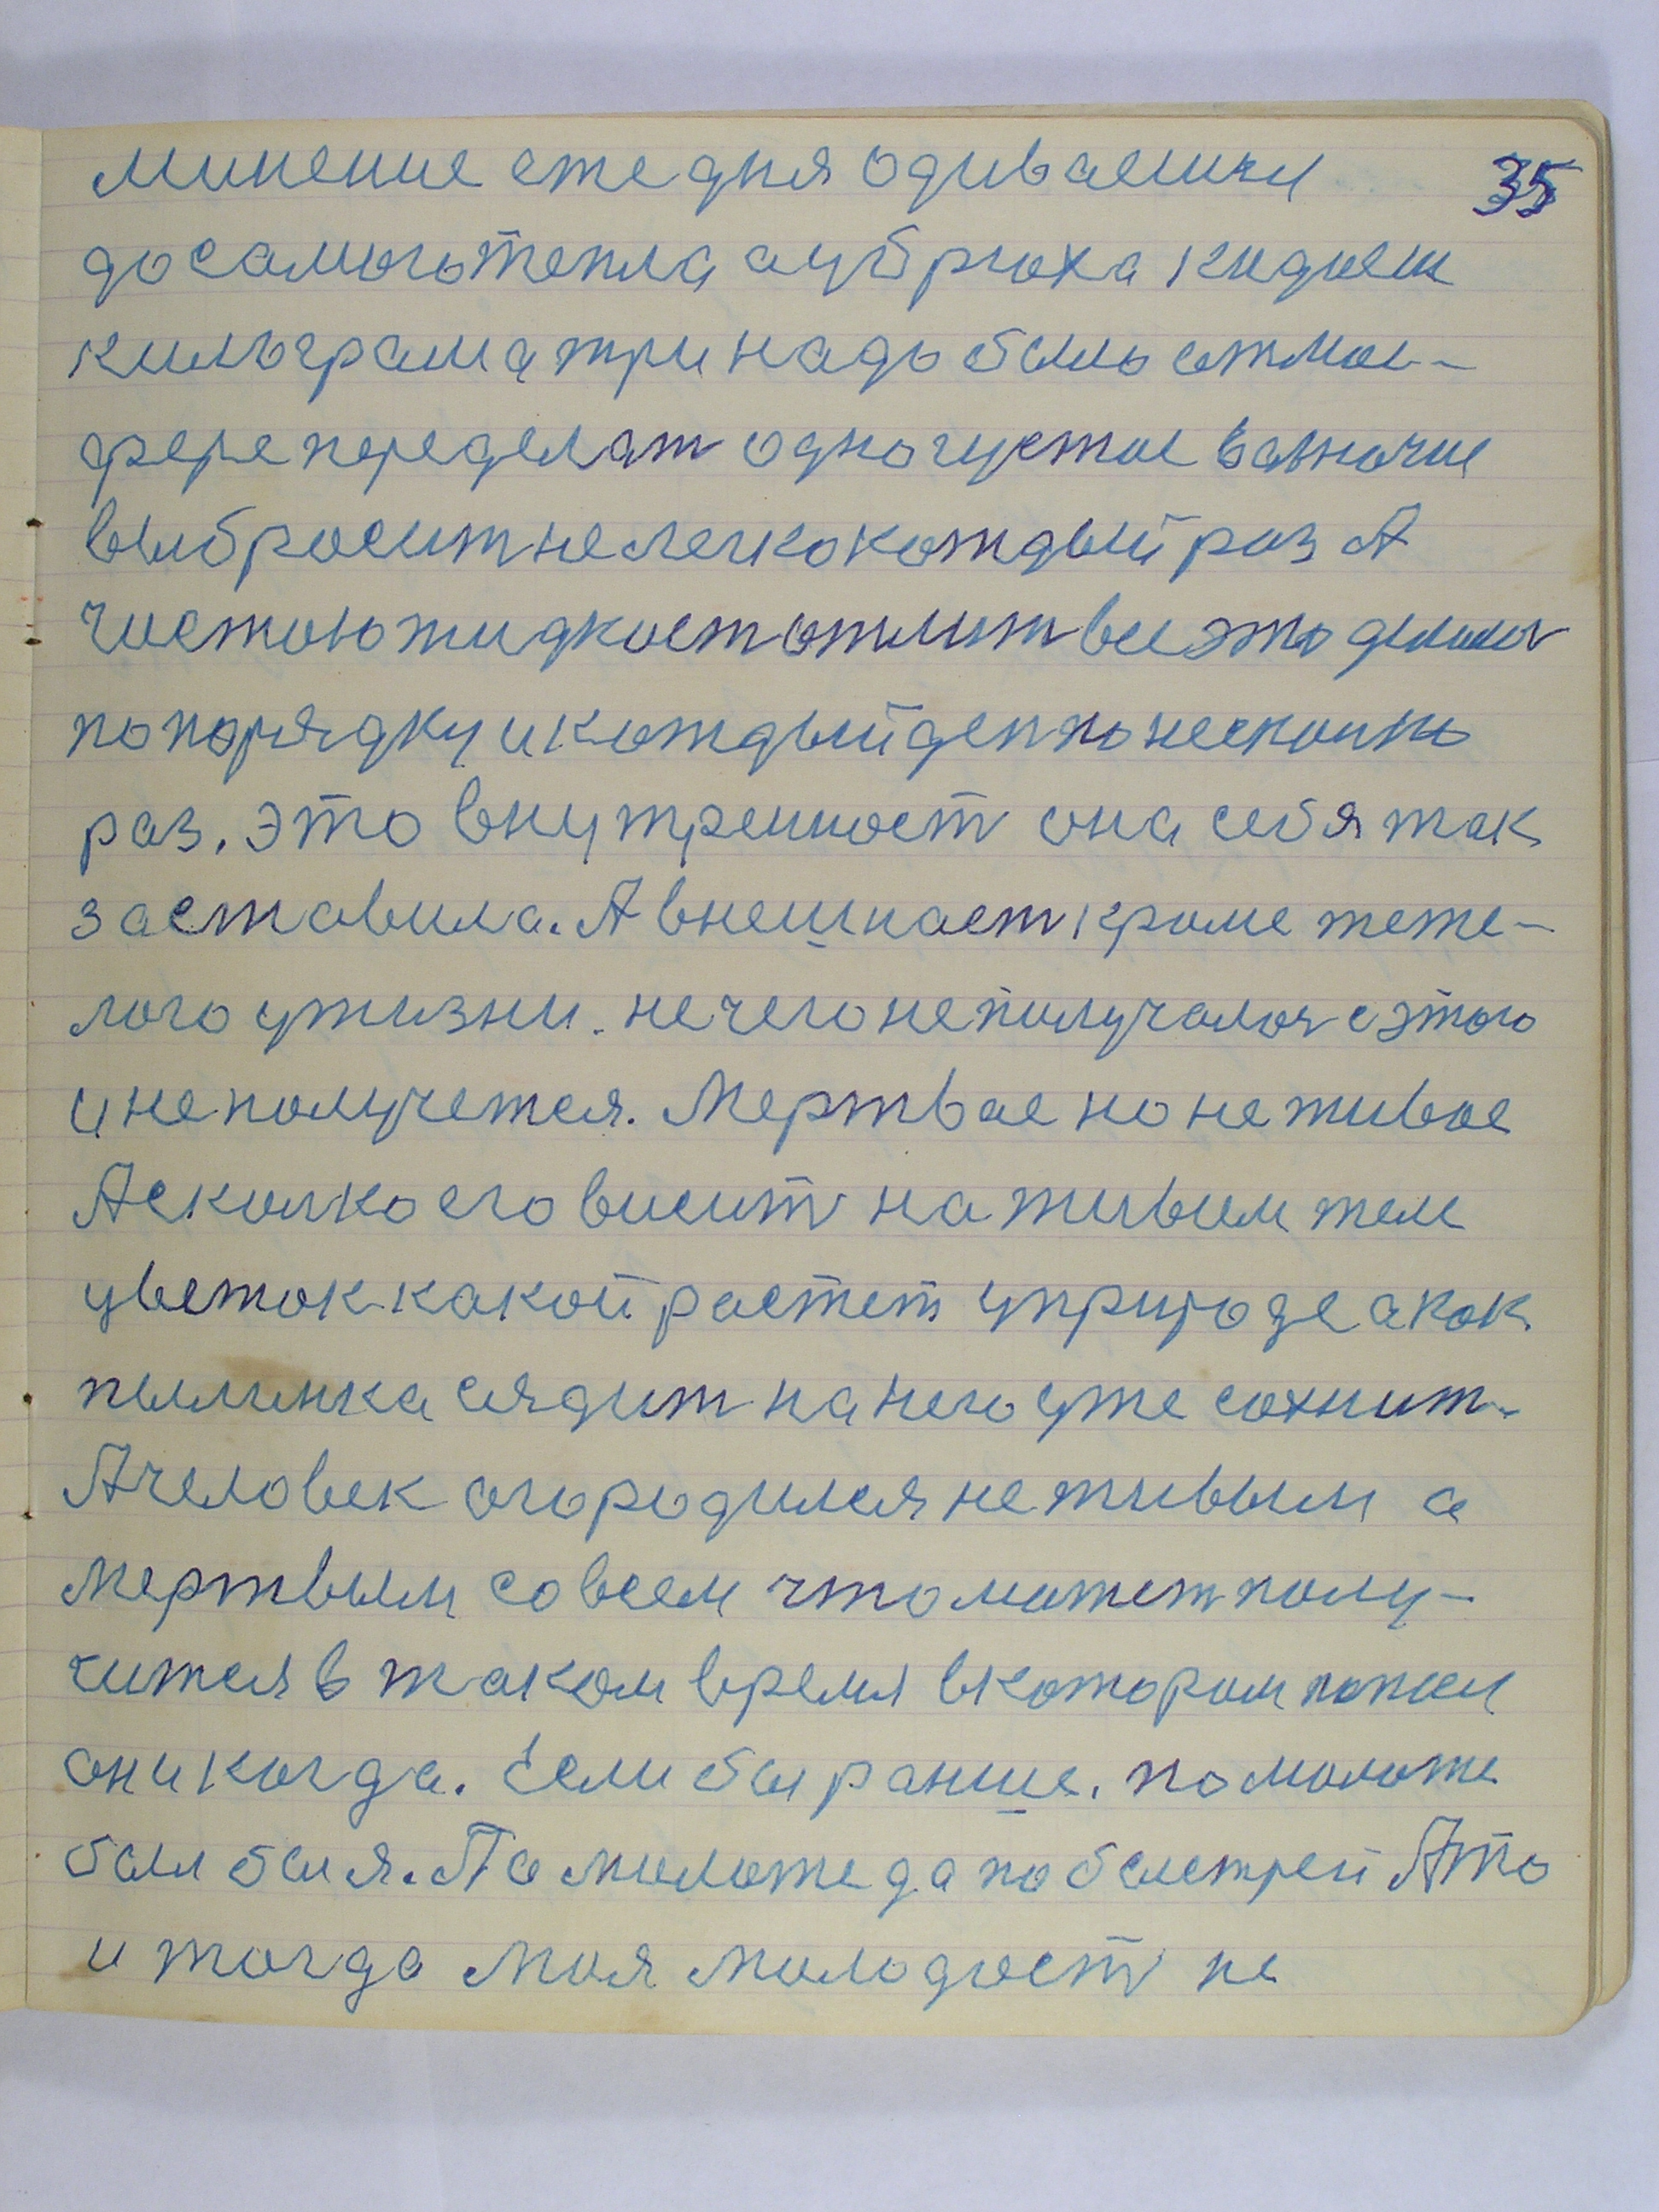 35
минение ежедня одиваешися
до самого тепла а у брюха кидаеш
килограма три надо было атмос-
фере переделат одно густое вонючие
выбросит не легко каждый раз А
чистою жидкост отлит все это делися
по порядку и каждый ден по несколко
раз. это внутренност она себя так
заставила. А внешнаст кроме теже-
лого у жизни. не чего не получалося с этого
и не получется. Мертвае но не живое
А сколко его висит на живым теле
цветок какой растет у природе а как
пылинка сядит на него уже сохнит.
А человек огородился не живым а
мертвым совсем что может полу-
чится в таком время в котором попал
он и когда. Если бы ранше. помоложе
был бы я. По моложе да по быстрей А то
и тогда моя молодост не